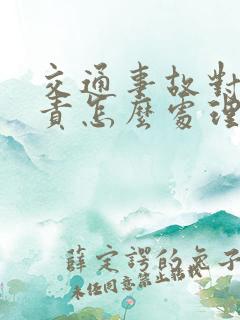 交通事故對
責怎麼處理
薛定諤的兔子
未經同意禁止轉載